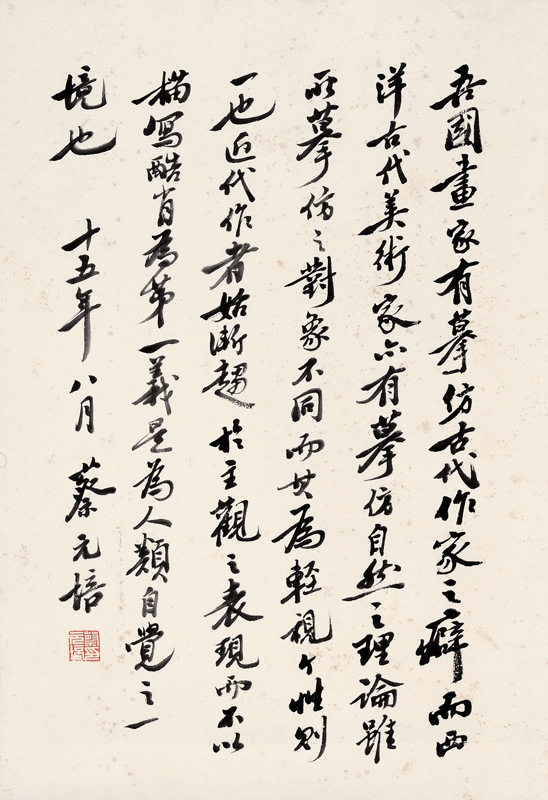 吾國畫家有摹仿古代作家之癖而西
洋古代美術家亦有摹仿自然之理論雖
所摹仿之對象不同而其為輕視个性則
一也近代作者始漸趨於主觀之表現而不以
描寫酷肖為第一義是為人類自覺之一
境也　十五年八月　蔡元培